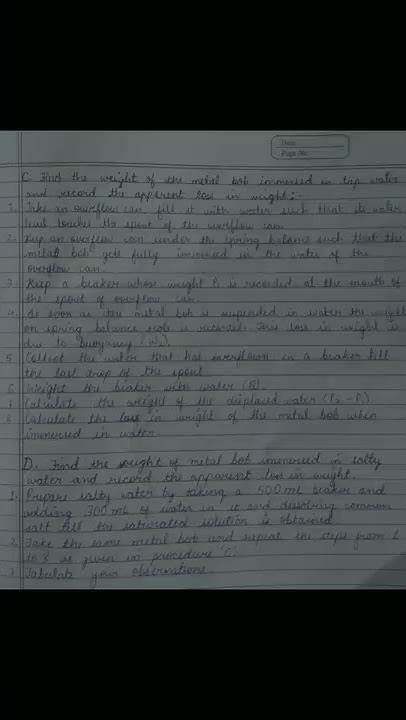 Date
Page No.
C. Find the weight of the metal bob immersed in tap water
and record the apparent loss in weight:-
1. Take an overflow can fill it with water such that its water
level touches the spout of the overflow can.
2. Keep an overflow can under the spring balance such that the
metal bob gets fully immersed in the water of the
overflow can.
3. Keep a beaker whose weight P1 is recorded at the mouth of
the spout of overflow can.
4. As soon as the metal bob is suspended in water the weight
on spring balance scale is recorded. This loss in weight is
due to buoyancy (W2).
5. Collect the water that has overflown in a beaker till
the last drop of the spout
6. Weight the beaker with water (P2).
7. Calculate the weight of the displaced water (P2 - P1)
8. Calculate the loss in weight of the metal bob when
immersed in water.
D. Find the weight of metal bob immersed in salty
water and record the apparent loss in weight.
1. Prepare salty water by taking a 500 mL beaker and
adding 300 mL of water in it and dissolving common
salt till the saturated solution is obtained.
2. Take the same metal bob and repeat the steps from 1
to 8 as given in procedure 'C'.
3. Tabulate your observations.